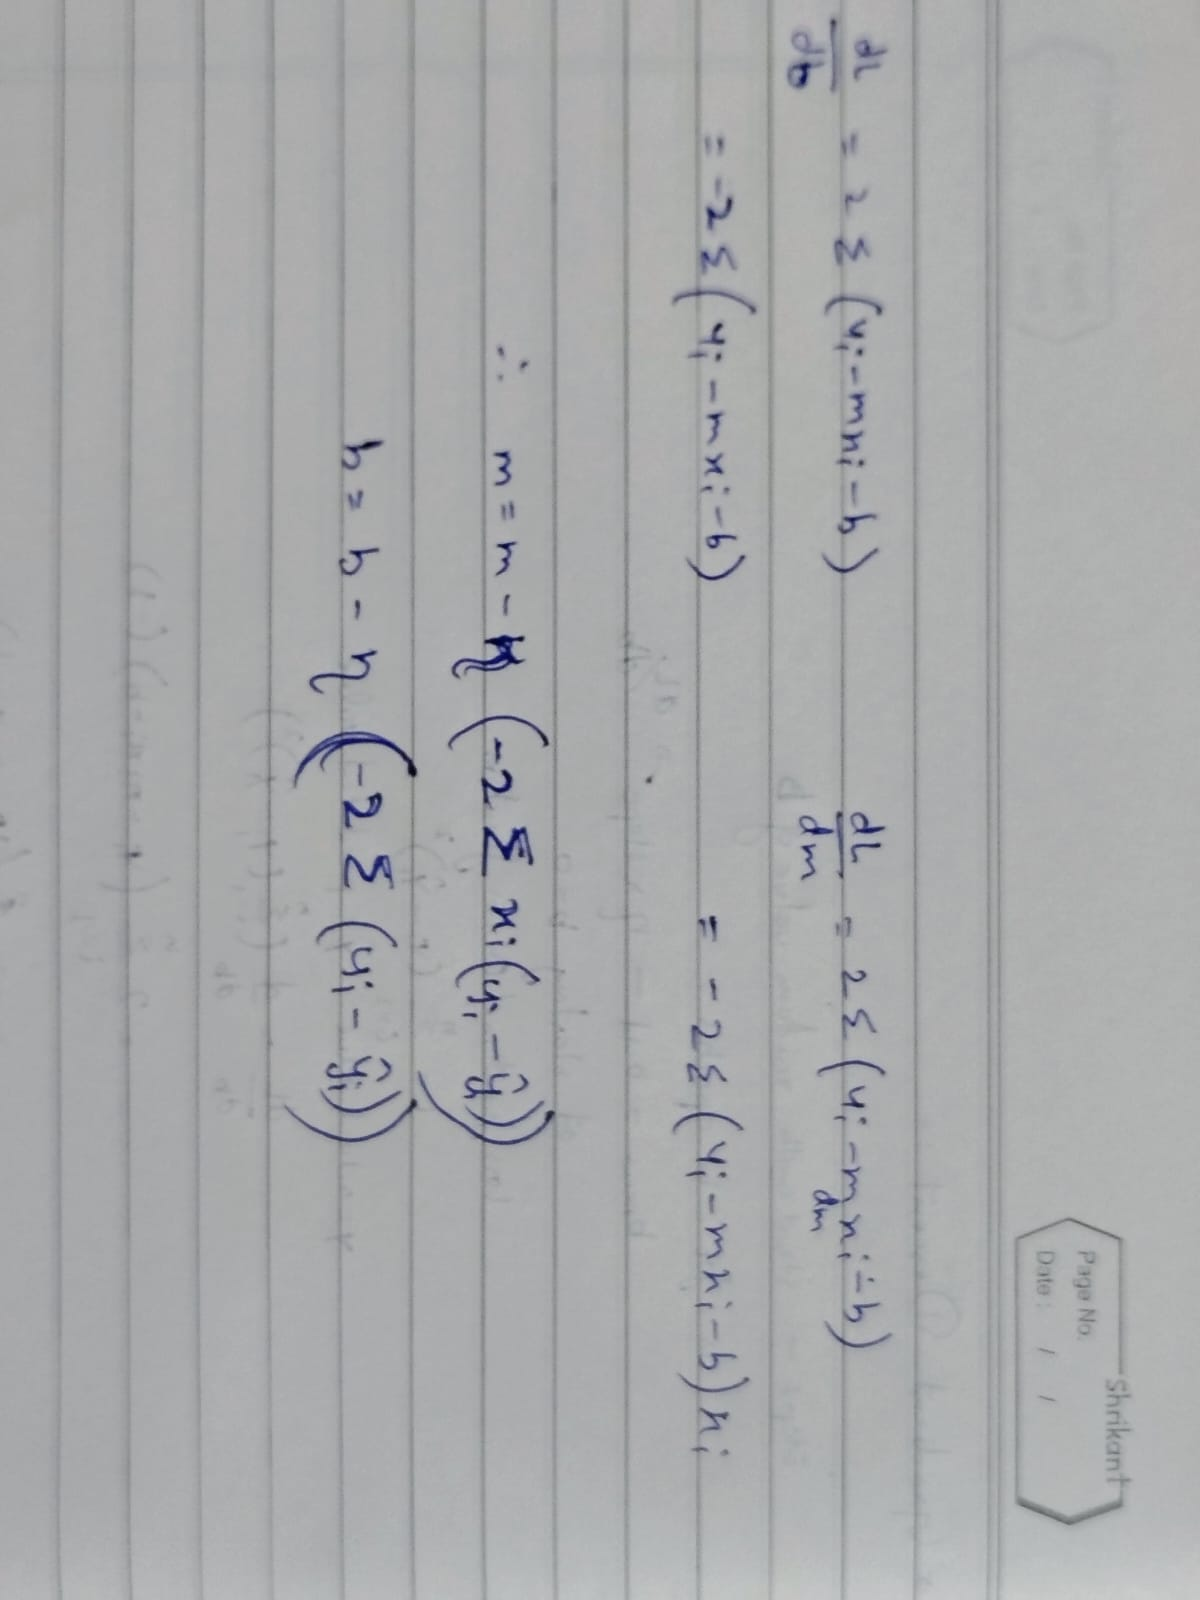 Shrikant
Page No.
Date: / /
dL/db = 2 Σ (yi - mxi - b)    dL/dm = 2 Σ (yi - mxi - b)
dm
= -2 Σ (yi - mxi - b)    = -2 Σ (yi - mxi - b) xi
∴ m = m - η (-2 Σ xi (yi - ŷi))
b = b - η (-2 Σ (yi - ŷi))